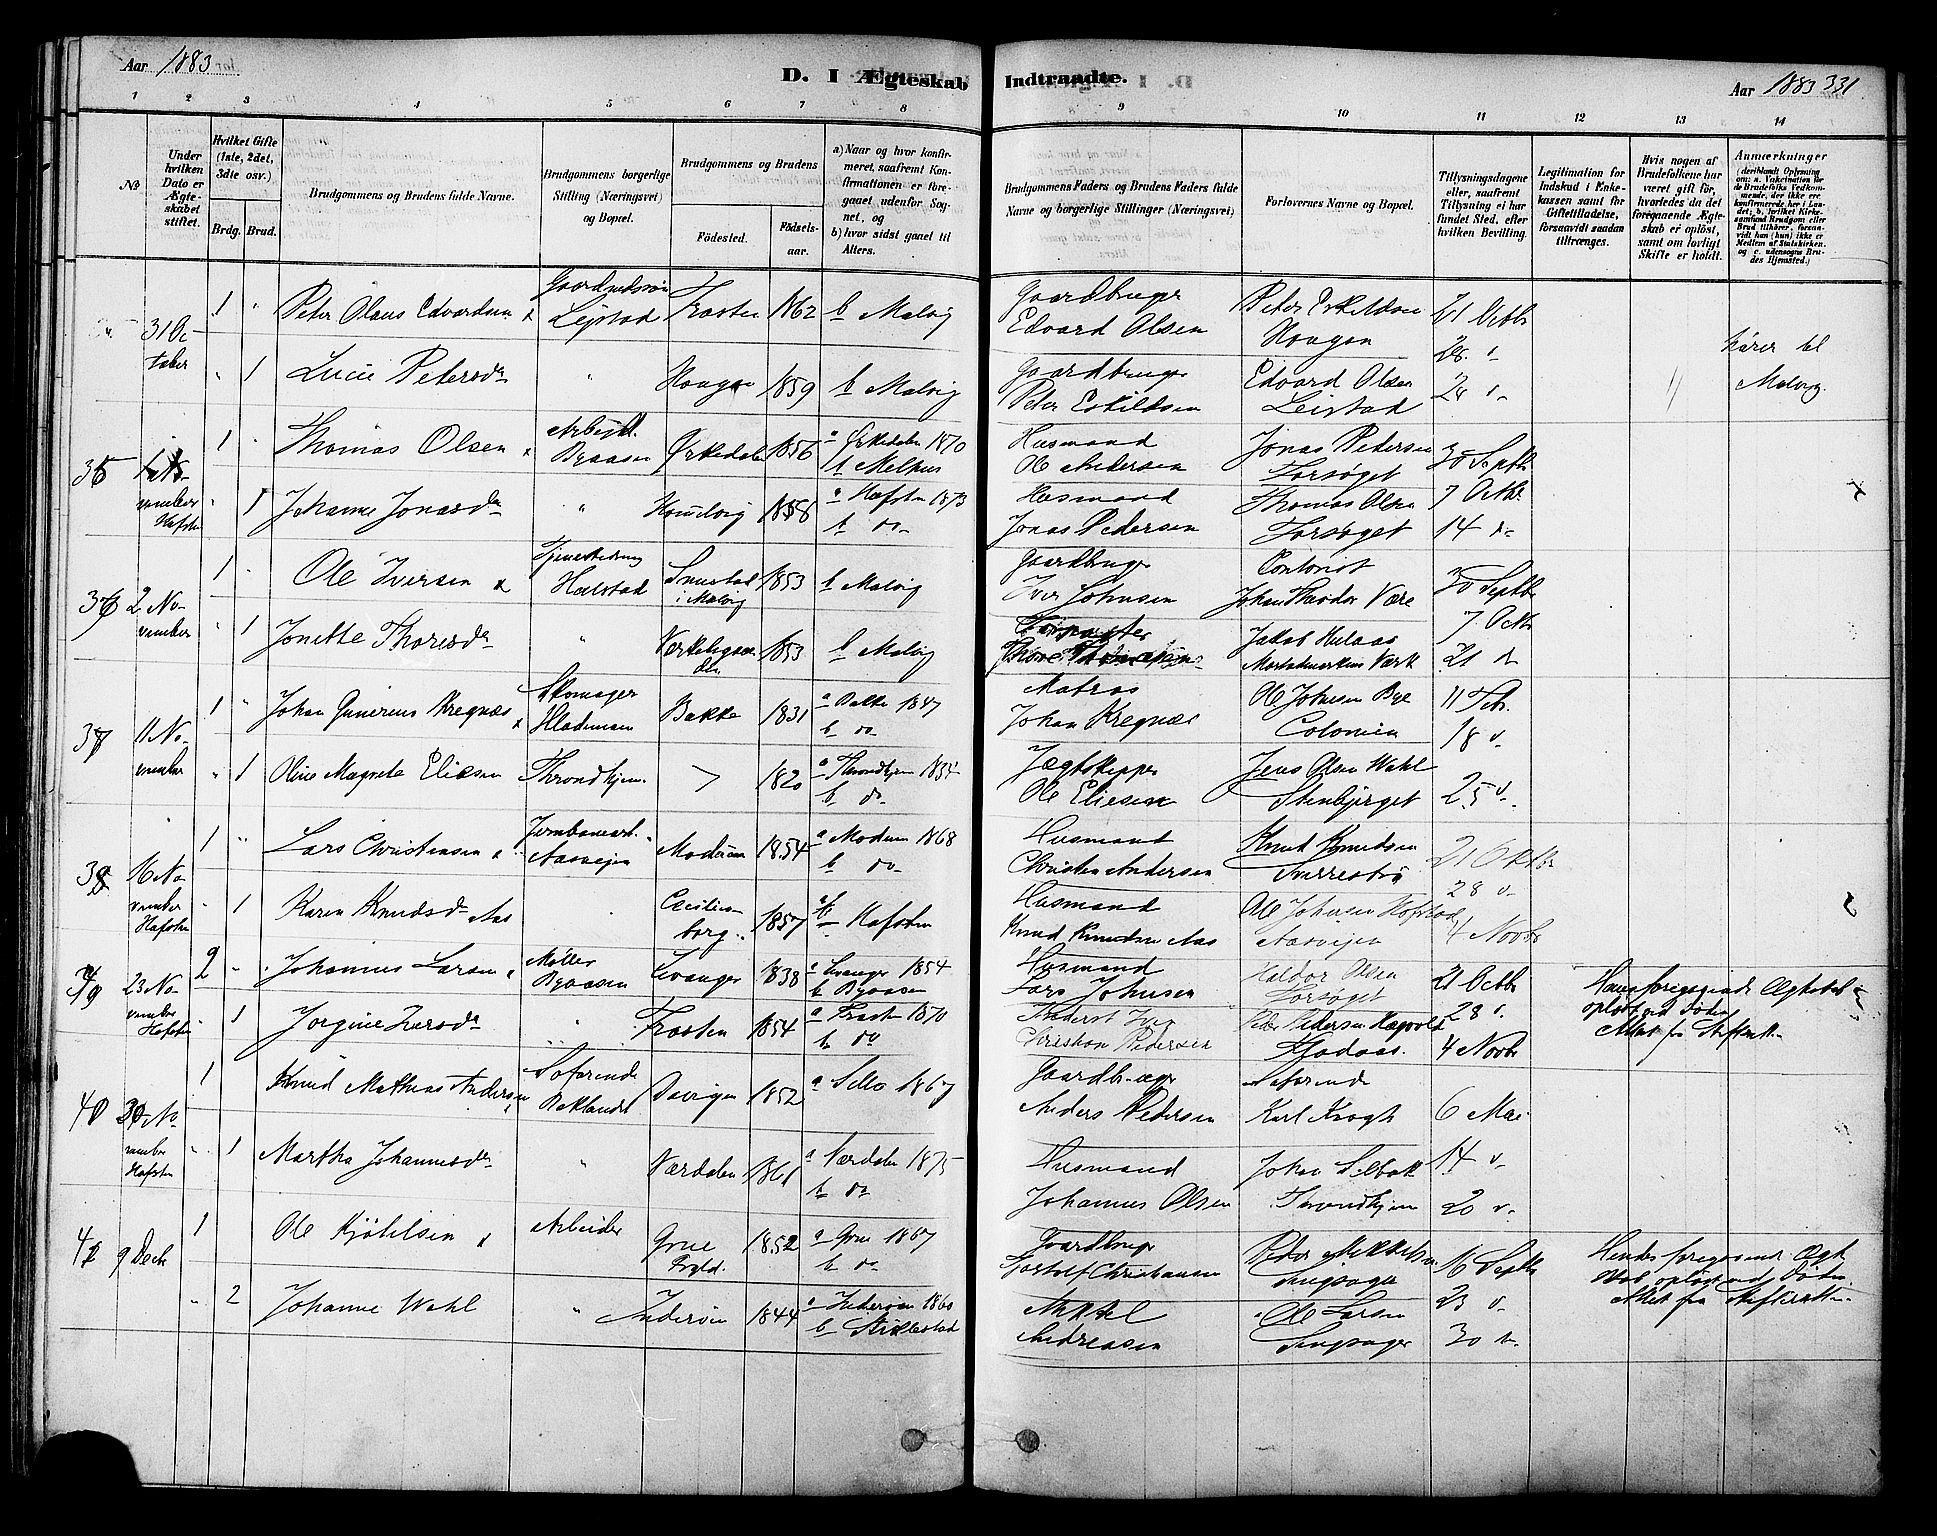 Aar 1883
D. I Ægteskab
Indtraadte.
Aar 1883 331
1 2 3 4 5 6 7 8
9 10 11 12 13 14
No
Under hvilken Dato er Ægteskabet stiftet.
Hvilket Gifte (1ste, 2det, 3die osv.)
Brdg. Brud.
Brudgommens og Brudens fulde Navne.
Brudgommens borgerlige Stilling (Næringsvei) og Bopæl.
Brudgommens og Brudens
Födested.
Födselsaar.
a) Naar og hvor konfirmeret, saafremt Konfirmationen er foregaaet udenfor Sognet, og
b) hvor sidst gaaet til Alters.
Brudgommens Faders og Brudens Faders fulde Navne og borgerlige Stillinger (Næringsvei)
Forlovernes Navne og Bopæl.
Tillysningsdagene eller, saafremt Tillysning ei har fundet Sted, efter hvilken Bevilling.
Legitimation for Indskud i Enkekassen samt for Giftetilladelse, forsaavidt saadan tiltrænges.
Hvis nogen af Brudefolkene har været gift før, hvorledes da det foregaaende Ægteskab er opløst, samt om lovligt Skifte er holdt.
Anmærkninger
31 October
1 Peter Olaus Edvardsen Gaardmdssøn Leistad Frosten 1862 b Malvig
Gaardbruger Edvard Olsen
Peter Eskildsen Hougan
21 Octbr
28 "
1 Lucie Petersdr " Hougan 1859 b Malvig
Gaardbruger Peter Eskildsen
Edvard Olsen Leistad
hører til Malvig
35 November Hafsten
1 Thomas Olsen Arbeid. Byaasen Ørkedalen 1856 a Ørkedalen 1870 b Melhus
Husmand Ole Andersen
Jonas Pedersen Forsøget
30 Septbr
1 Johanne Jonasdr " 1858 a Hafsten 1873 b do
Husmand Jonas Pedersen
Thomas Olsen Forsøget
7 Octbr
14 do
36 2 November
1 Ole Iversen Halstad i Malvig 1853 b Malvig
Gaardbruger Iver Johnsen
Contorist Johan Theodor Være
30 Septbr
1 Jonette Thoresdr " 1853 b Malvig
Jakob
7 Octbr
21 do
37 11 November
1 Johan Gunerius Kregnæs Skomager Hladmoen Bakke 1831 a Bakke 1847 b do
Matros Johan Kregnæs
Ole Johnsen Bye Colonien
11 Febr.
18 "
1 Oline Magrete Eliesen Throndhjem 1820 a Throndhjem b do
Jægtskipper Ole Eliesen
Jens Olsen Wahl Stenbjerget
25 "
38 16 November Hafsten
1 Lars Christensen Jernbanearb. Aasveien Modum 1854 a Modum 1868 b do
Husmand Christen Andersen
Knud Knudsen
21 Oktbr
28 "
1 Karen Knudsdr Aas Cecilienborg 1857 Hafsten
Husmand Knud Knudsen Aas
Ole Johnsen Hofstad Aasveien
4 Novbr
39 23 November Hafsten
2 Johannes Larsen Møller Byaasen Levanger 1838 a Levanger 1854 b Byaasen
Husmand Lars Johnsen
Haldor Olsen Forsøget
21 Octbr
Hans foregaaende Ægteskab opløst ved Døden Attest fra Skifterett.
1 Jørgine Iversdr " Frosten 1854 a Frosten 1870 b do
Peder Pedersen
28 "
4 Novbr
40 30 November Hafsten
1 Knud Mathias Andersen Søfarende Baklandet 1852 a 1867
Gaardbruger Anders Pedersen
Søfarende Karl Krogh
6 Mai
1 Martha Johannesdr " Værdalen 1861 a Værdalen 1875 b do
Husmand Johannes Olsen
Johan Selbak Throndhjem
14 "
20 "
41 9 Decbr
1 Ole Kjøtilsen Arbeider Grue Prgld. 1852 a Grue 1867 b do
Gaardbruger Christiansen
Peder Mikkelsen Singsager
16 Septbr
Hendes foregaaende Ægteskab opløst ved Døden. Attest fra Skifteretten
2 Johanne Wahl " Inderøen 1844 a Inderøen 1860 b Stiklestad
Mikkel Andreasen
Ole Larsen Singsager
23 "
30 "